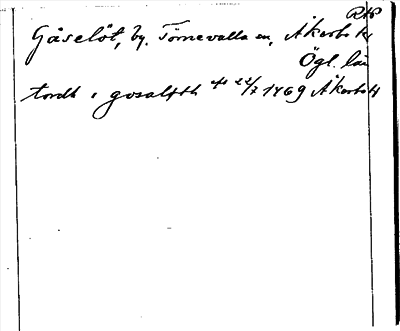 RAP
Gåselöt, by. Törnevalla sn, Åkerbo hd
Ögl. län
tordh i gosaløth afs 22/7 1469 Åkerbo hd